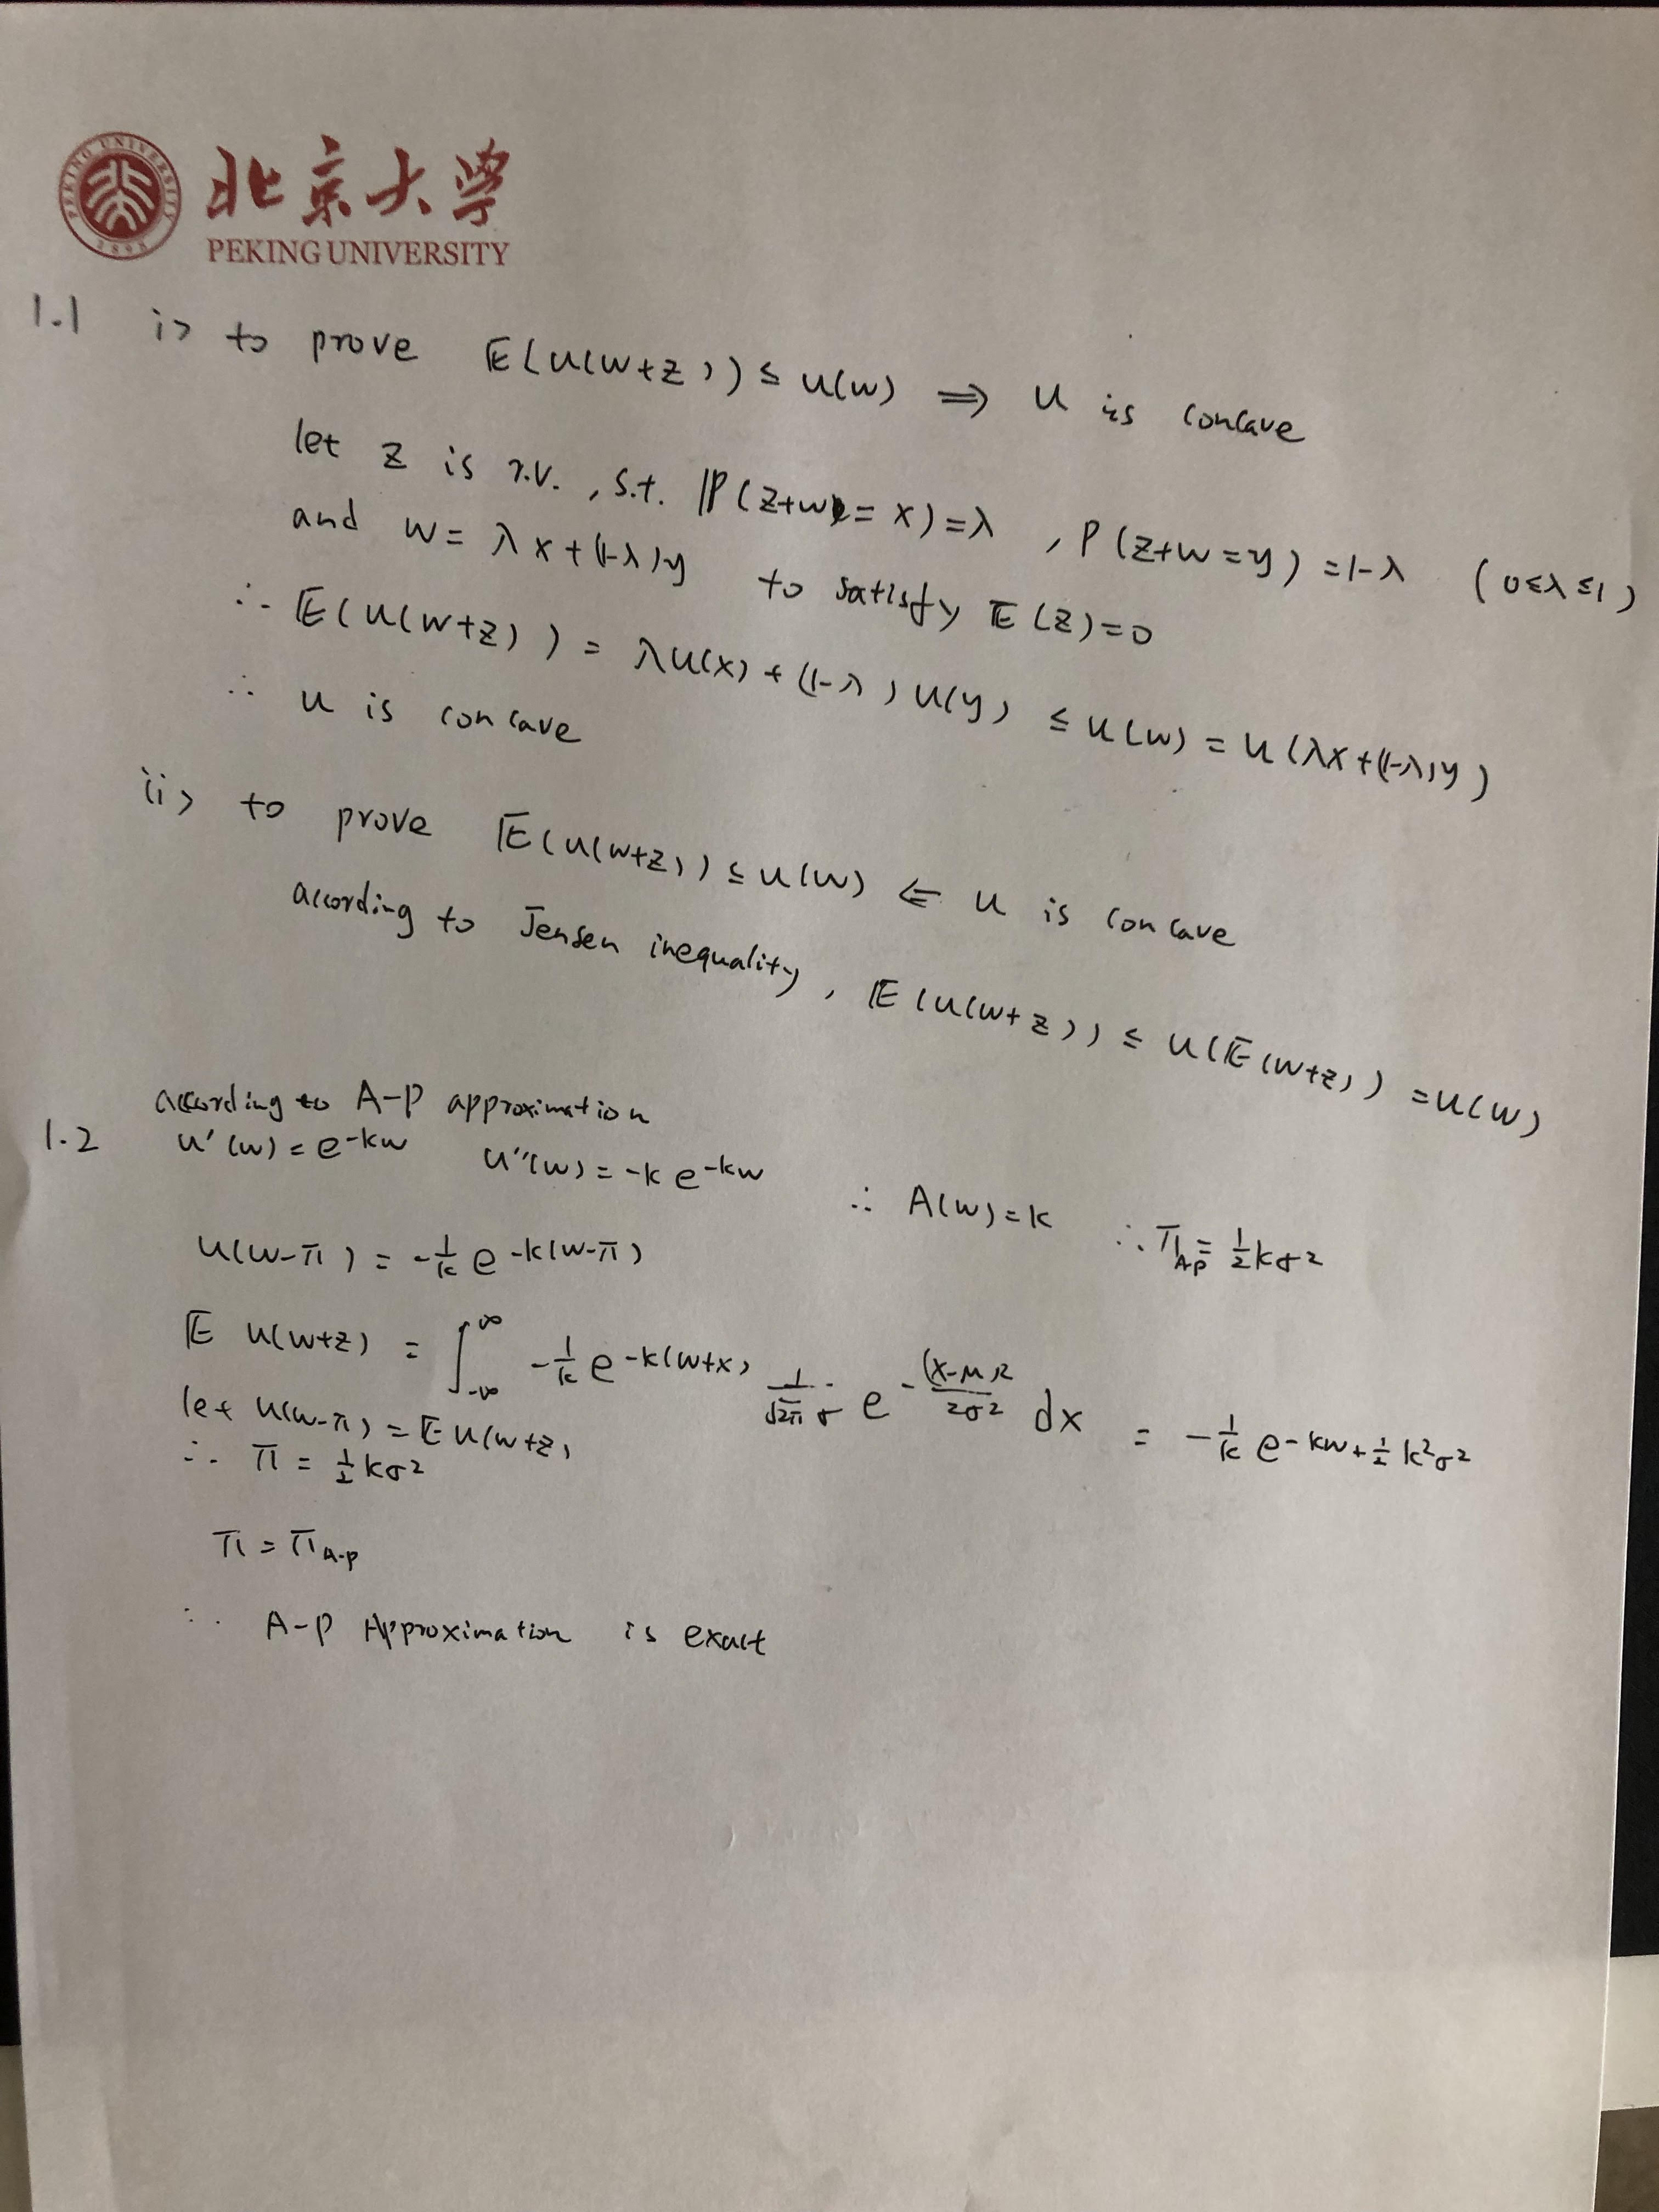 北京大学
PEKING UNIVERSITY
PEKING UNIVERSITY
1898
1.1 i> to prove E(u(w+z)) ≤ u(w) ⇒ u is concave
let z is r.v., s.t. P(z+w = x)=λ , P(z+w=y)=1-λ (0≤λ≤1)
and w = λx+(1-λ)y to satisfy E(z)=0
∴ E(u(w+z)) = λu(x)+(1-λ)u(y) ≤ u(w) = u(λx+(1-λ)y)
∴ u is concave
ii> to prove E(u(w+z)) ≤ u(w) ⇐ u is concave
according to Jensen inequality, E(u(w+z)) ≤ u(E(w+z)) = u(w)
according to A-P approximation
1.2 u'(w) = e^{-kw} u''(w) = -k e^{-kw} ∴ A(w)=k ∴ π_{A-P} = ½kσ²
u(w-π) = -1/k e^{-k(w-π)}
E u(w+z) = ∫_{-∞}^{∞} -1/k e^{-k(w+x)} 1/(√2π σ) e^{-(x-μ)²/2σ²} dx = -1/k e^{-kw+½k²σ²}
let u(w-π) = E u(w+z)
∴ π = ½kσ²
π = π_{A-P}
∴ A-P Approximation is exact